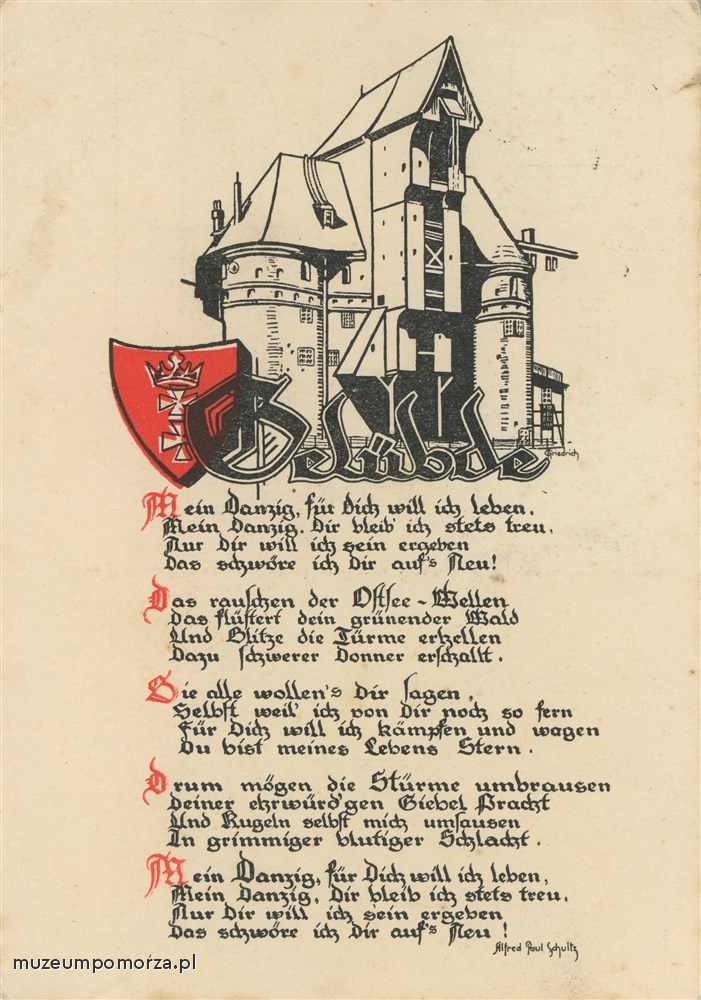 Gelübde
Friedrich
Mein Danzig, für Dich will ich leben.
Mein Danzig. Dir bleib' ich stets treu.
Nur Dir will ich sein ergeben
Das schwöre ich Dir auf's Neu!
Das rauschen der Ostsee-Wellen
Das flüstert dein grünender Wald
Und Blitze die Türme erhellen
Dazu schwerer Donner erschallt.
Sie alle wollen's Dir sagen,
Selbst weil' ich von Dir noch so fern
Für Dich will ich kämpfen und wagen
Du bist meines Lebens Stern.
Drum mögen die Stürme umbrausen
Deiner ehrwürd'gen Giebel Pracht
Und Kugeln selbst mich umsausen
In grimmiger blutiger Schlacht.
Mein Danzig, für Dich will ich leben,
Mein Danzig, Dir bleib ich stets treu.
Nur Dir will ich sein ergeben
Das schwöre ich Dir auf's Neu!
Alfred Paul Schultz
muzeumpomorza.pl